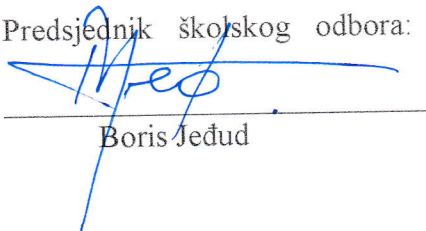 Predsjednik školskog odbora:
Boris Jeđud